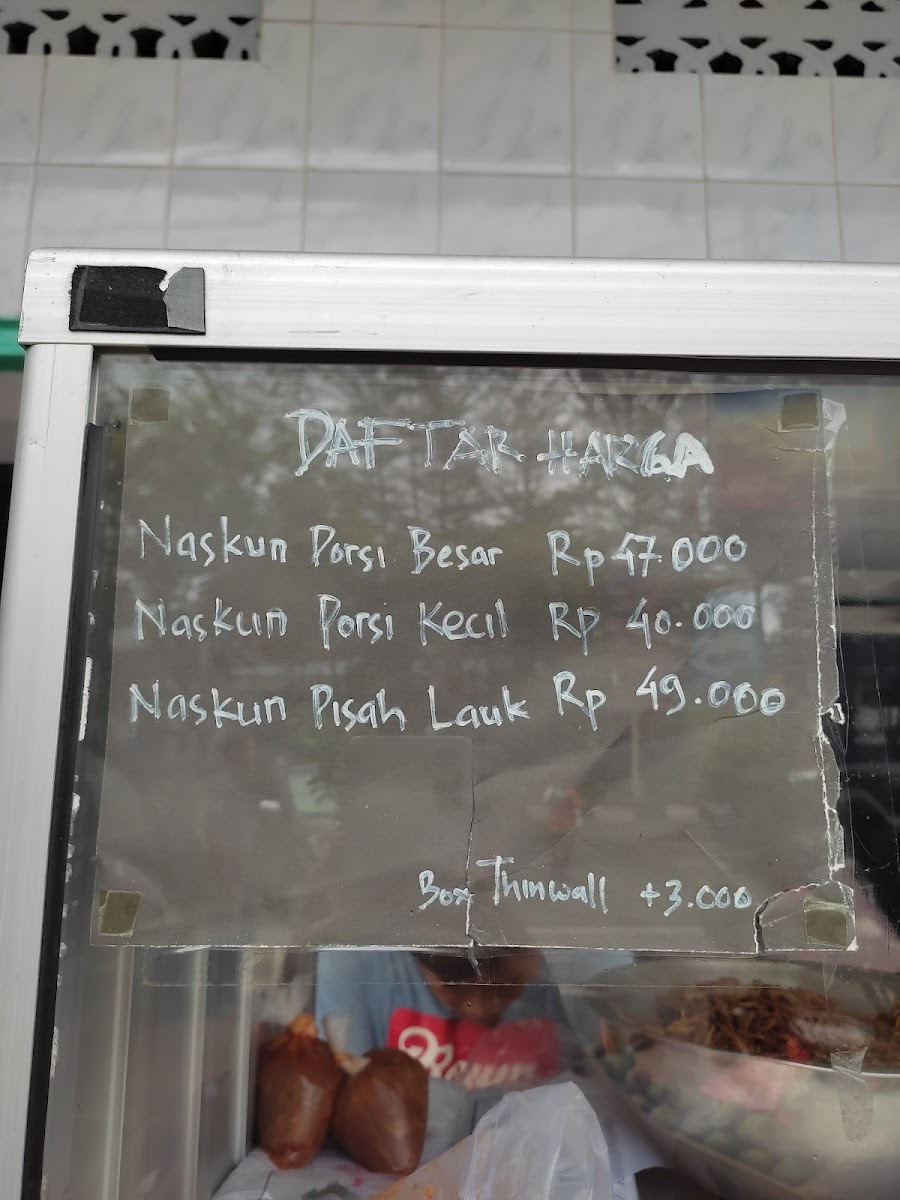 DAFTAR HARGA
Naskun Porsi Besar Rp 47.000
Naskun Porsi Kecil Rp 40.000
Naskun Pisah Lauk Rp 49.000
Box Thinwall +3.000